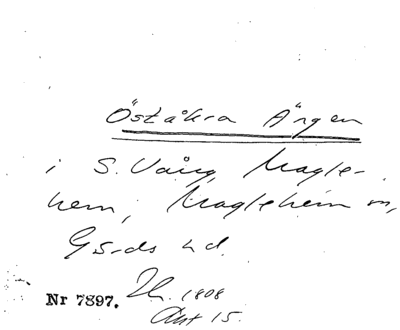 Öståkra Ängen
i S. Vång, Magle-
hem, Maglehem sn,
Gärds hd.
Nr 7897. 1808
Akt 15.